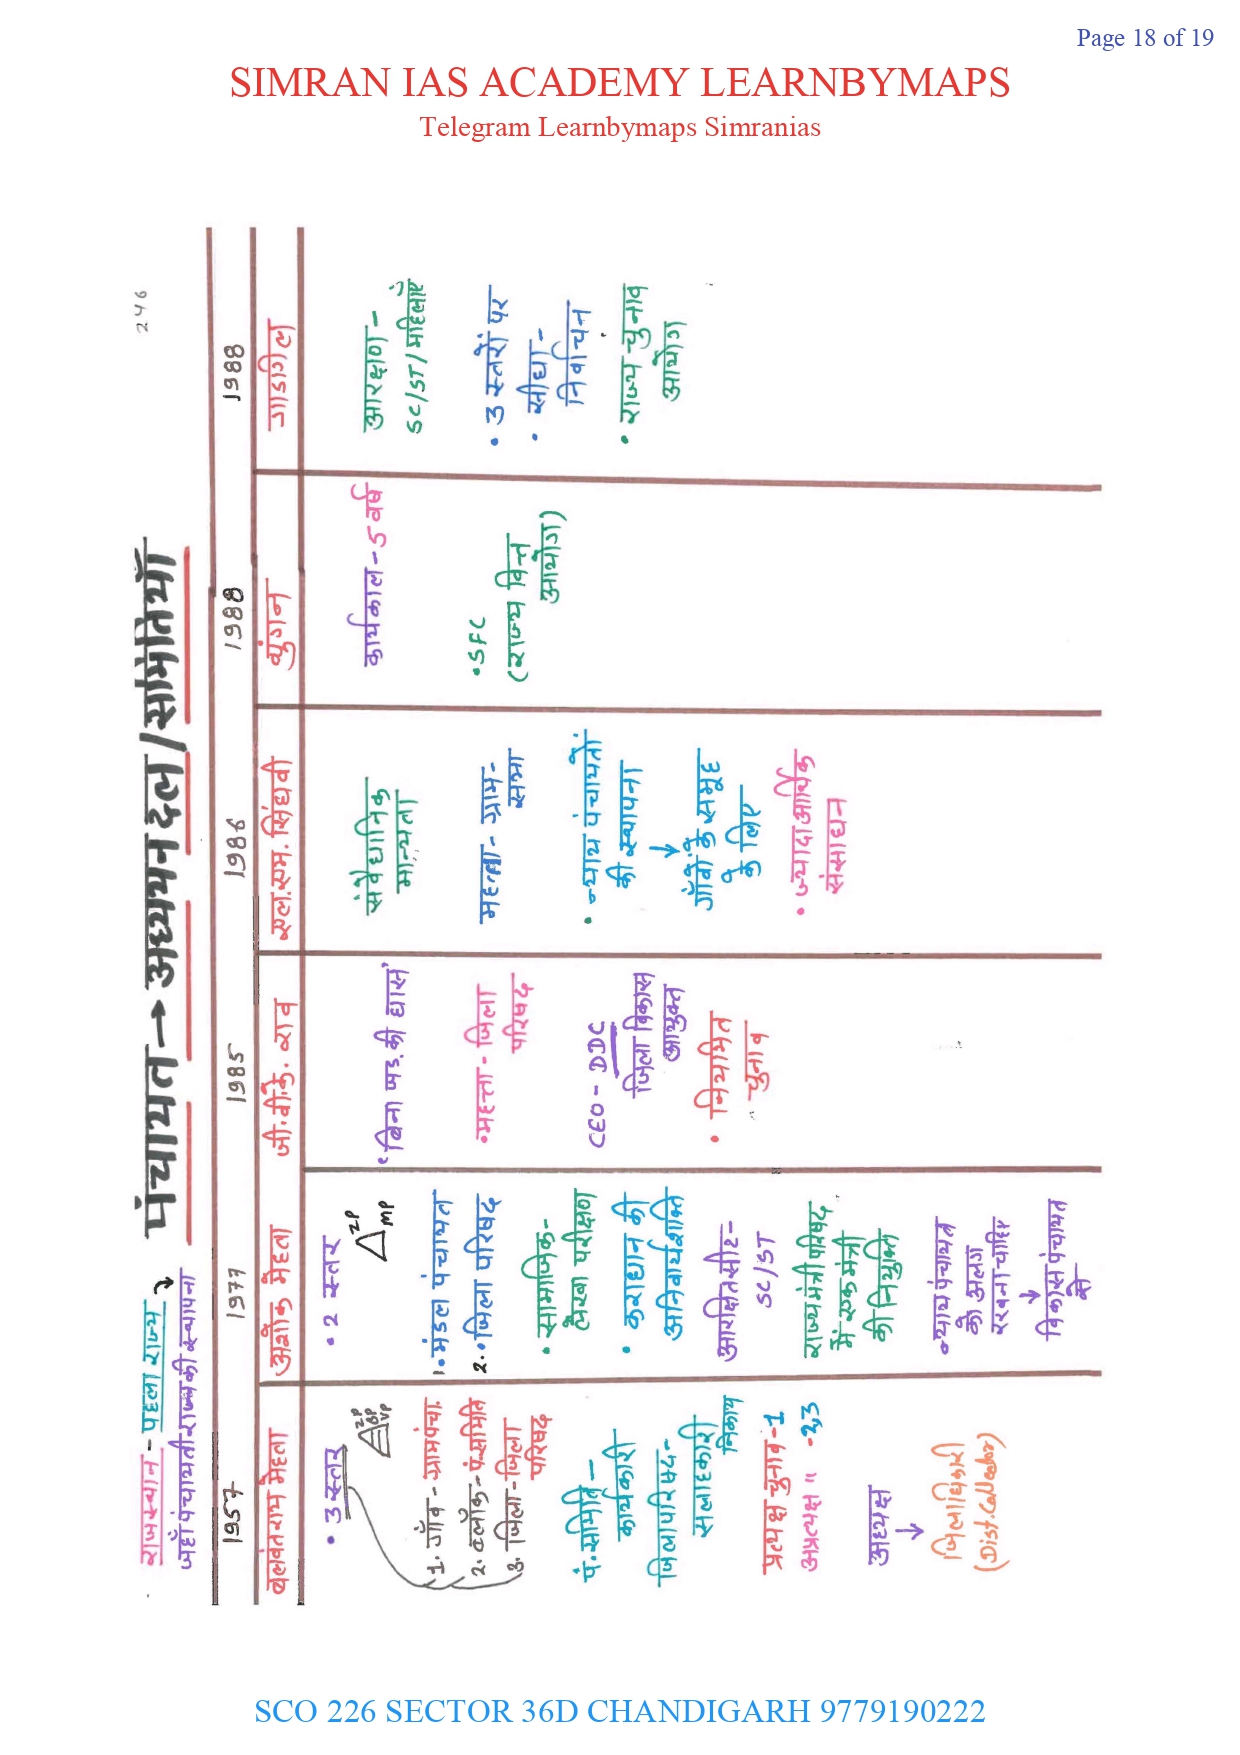 Page 18 of 19
SIMRAN IAS ACADEMY LEARNBYMAPS
Telegram Learnbymaps Simranias
246
राजस्थान - पहला राज्य
जहाँ पंचायती राज्य की स्थापना
पंचायत → अध्ययन दल / समितियाँ
1957
बलवंतराय मेहता
• 3 स्तर
ZP
BP
VP
1. गाँव - ग्रामपंचा.
2. ब्लॉक - पं.समिति
3. जिला - जिला
परिषद
पं. समिति -
कार्यकारी
जिला परिषद -
सलाहकारी
निकाय
प्रत्यक्ष चुनाव - 1
अप्रत्यक्ष " - 2,3
अध्यक्ष
↓
जिलाधिकारी
(Dist. Collector)
1977
अशोक मेहता
• 2 स्तर
ZP
MP
1. मंडल पंचायत
2. • जिला परिषद
• सामाजिक -
लेखा परीक्षण
• कराधान की
अनिवार्य शक्ति
आरक्षित सीट -
SC/ST
राज्य मंत्री परिषद
में एक मंत्री
की नियुक्ति
न्याय पंचायत
को अलग
रखना चाहिए
↓
विकास पंचायत
से
1985
जी.वी.के. राव
'बिना जड़ की घास'
• महत्ता - जिला
परिषद
CEO - DDC
जिला विकास
आयुक्त
• नियमित
चुनाव
1986
एल.एम. सिंघवी
संवैधानिक
मान्यता
महत्ता - ग्राम -
सभा
• न्याय पंचायतों
की स्थापना
↓
गाँवों के समूह
के लिए
• ज्यादा आर्थिक
संसाधन
1988
थुंगन
कार्यकाल - 5 वर्ष
• SFC
(राज्य वित्त
आयोग)
1988
गाडगिल
आरक्षण -
SC/ST/महिलाएं
• 3 स्तरों पर
• सीधा -
निर्वाचन
• राज्य चुनाव
आयोग
SCO 226 SECTOR 36D CHANDIGARH 9779190222